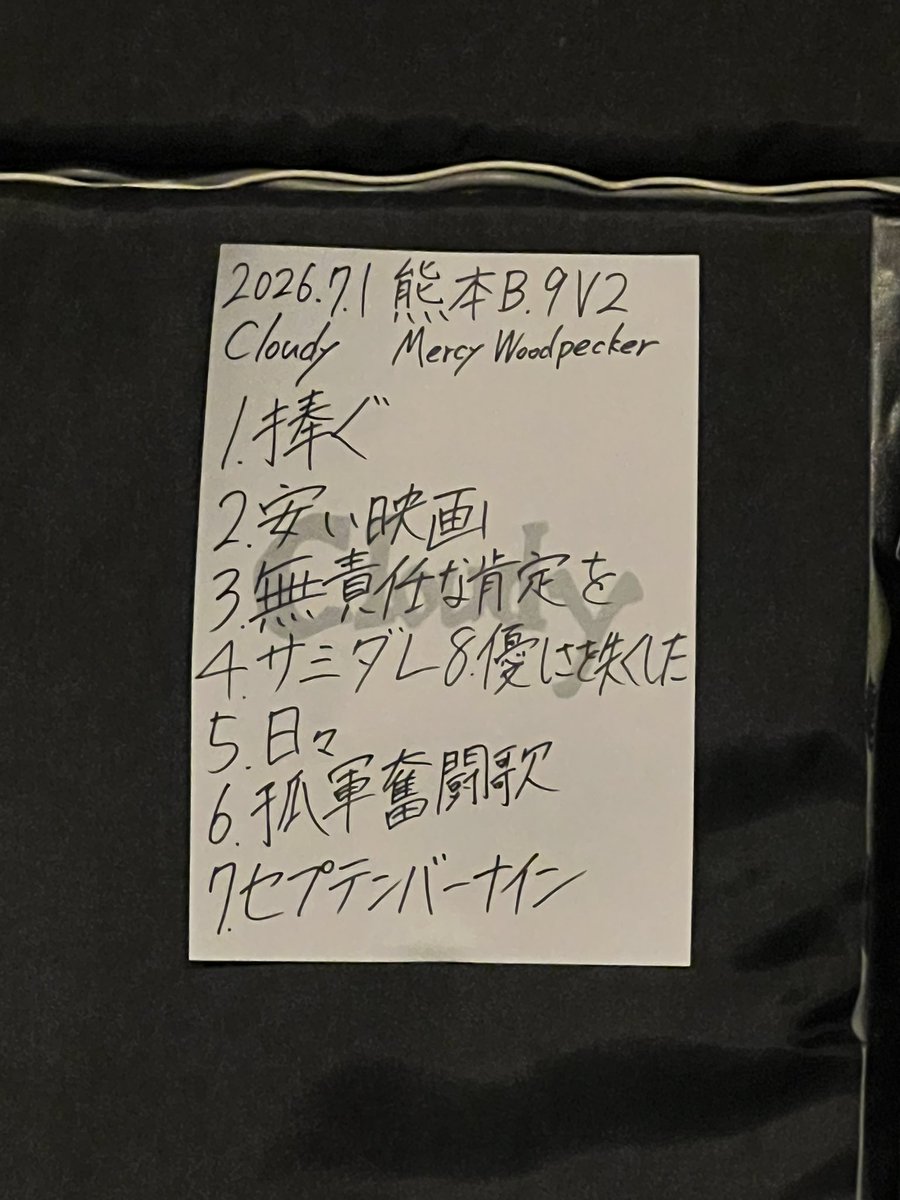 2026.7.1 熊本B.9V2
Cloudy Mercy Woodpecker
1.捧ぐ
2.安い映画
3.無責任な肯定を
4.サミダレ 8.優しさを失くした
5.日々
6.孤軍奮闘歌
7.セプテンバーナイン
Cloudy